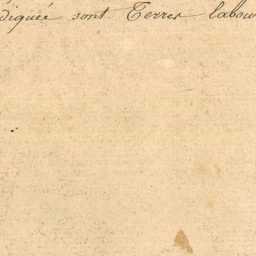 diquée sont Terres labour